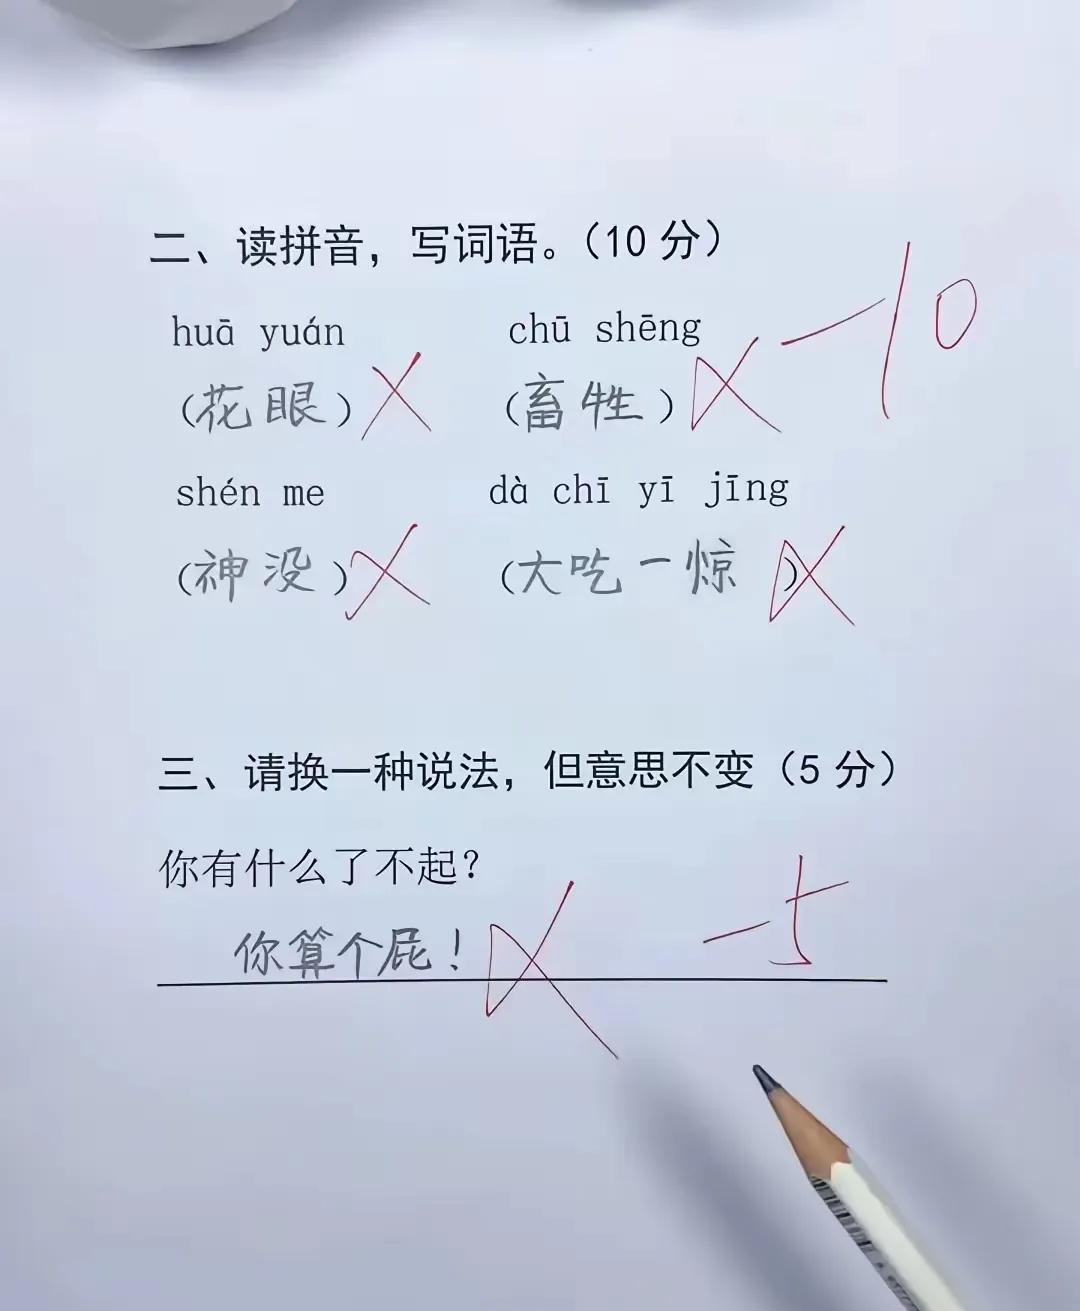 二、读拼音，写词语。（10 分）
-10
huā yuán chū shēng
（花眼） （畜牲）
shén me dà chī yī jīng
（神没） （大吃一惊）
三、请换一种说法，但意思不变（5 分）
你有什么了不起？
你算个屁！ -5